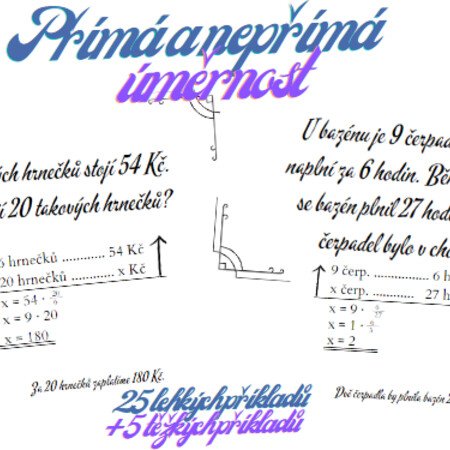 Přímá a nepřímá
úměrnost
ých hrnečků stojí 54 Kč.
í 20 takových hrnečků?
6 hrnečků ............ 54 Kč
20 hrnečků ............ x Kč
x = 54 · 20/6
x = 9 · 20
x = 180
Za 20 hrnečků zaplatíme 180 Kč.
U bazénu je 9 čerpad
naplní za 6 hodin. Bě
se bazén plnil 27 hod
čerpadel bylo v ch
9 čerp. ............ 6 h
x čerp. ............ 27 h
x = 9 ·
x = 1 ·
x = 2
Dvě čerpadla by plnila bazén 2
25 lehkých příkladů
+ 5 těžkých příkladů